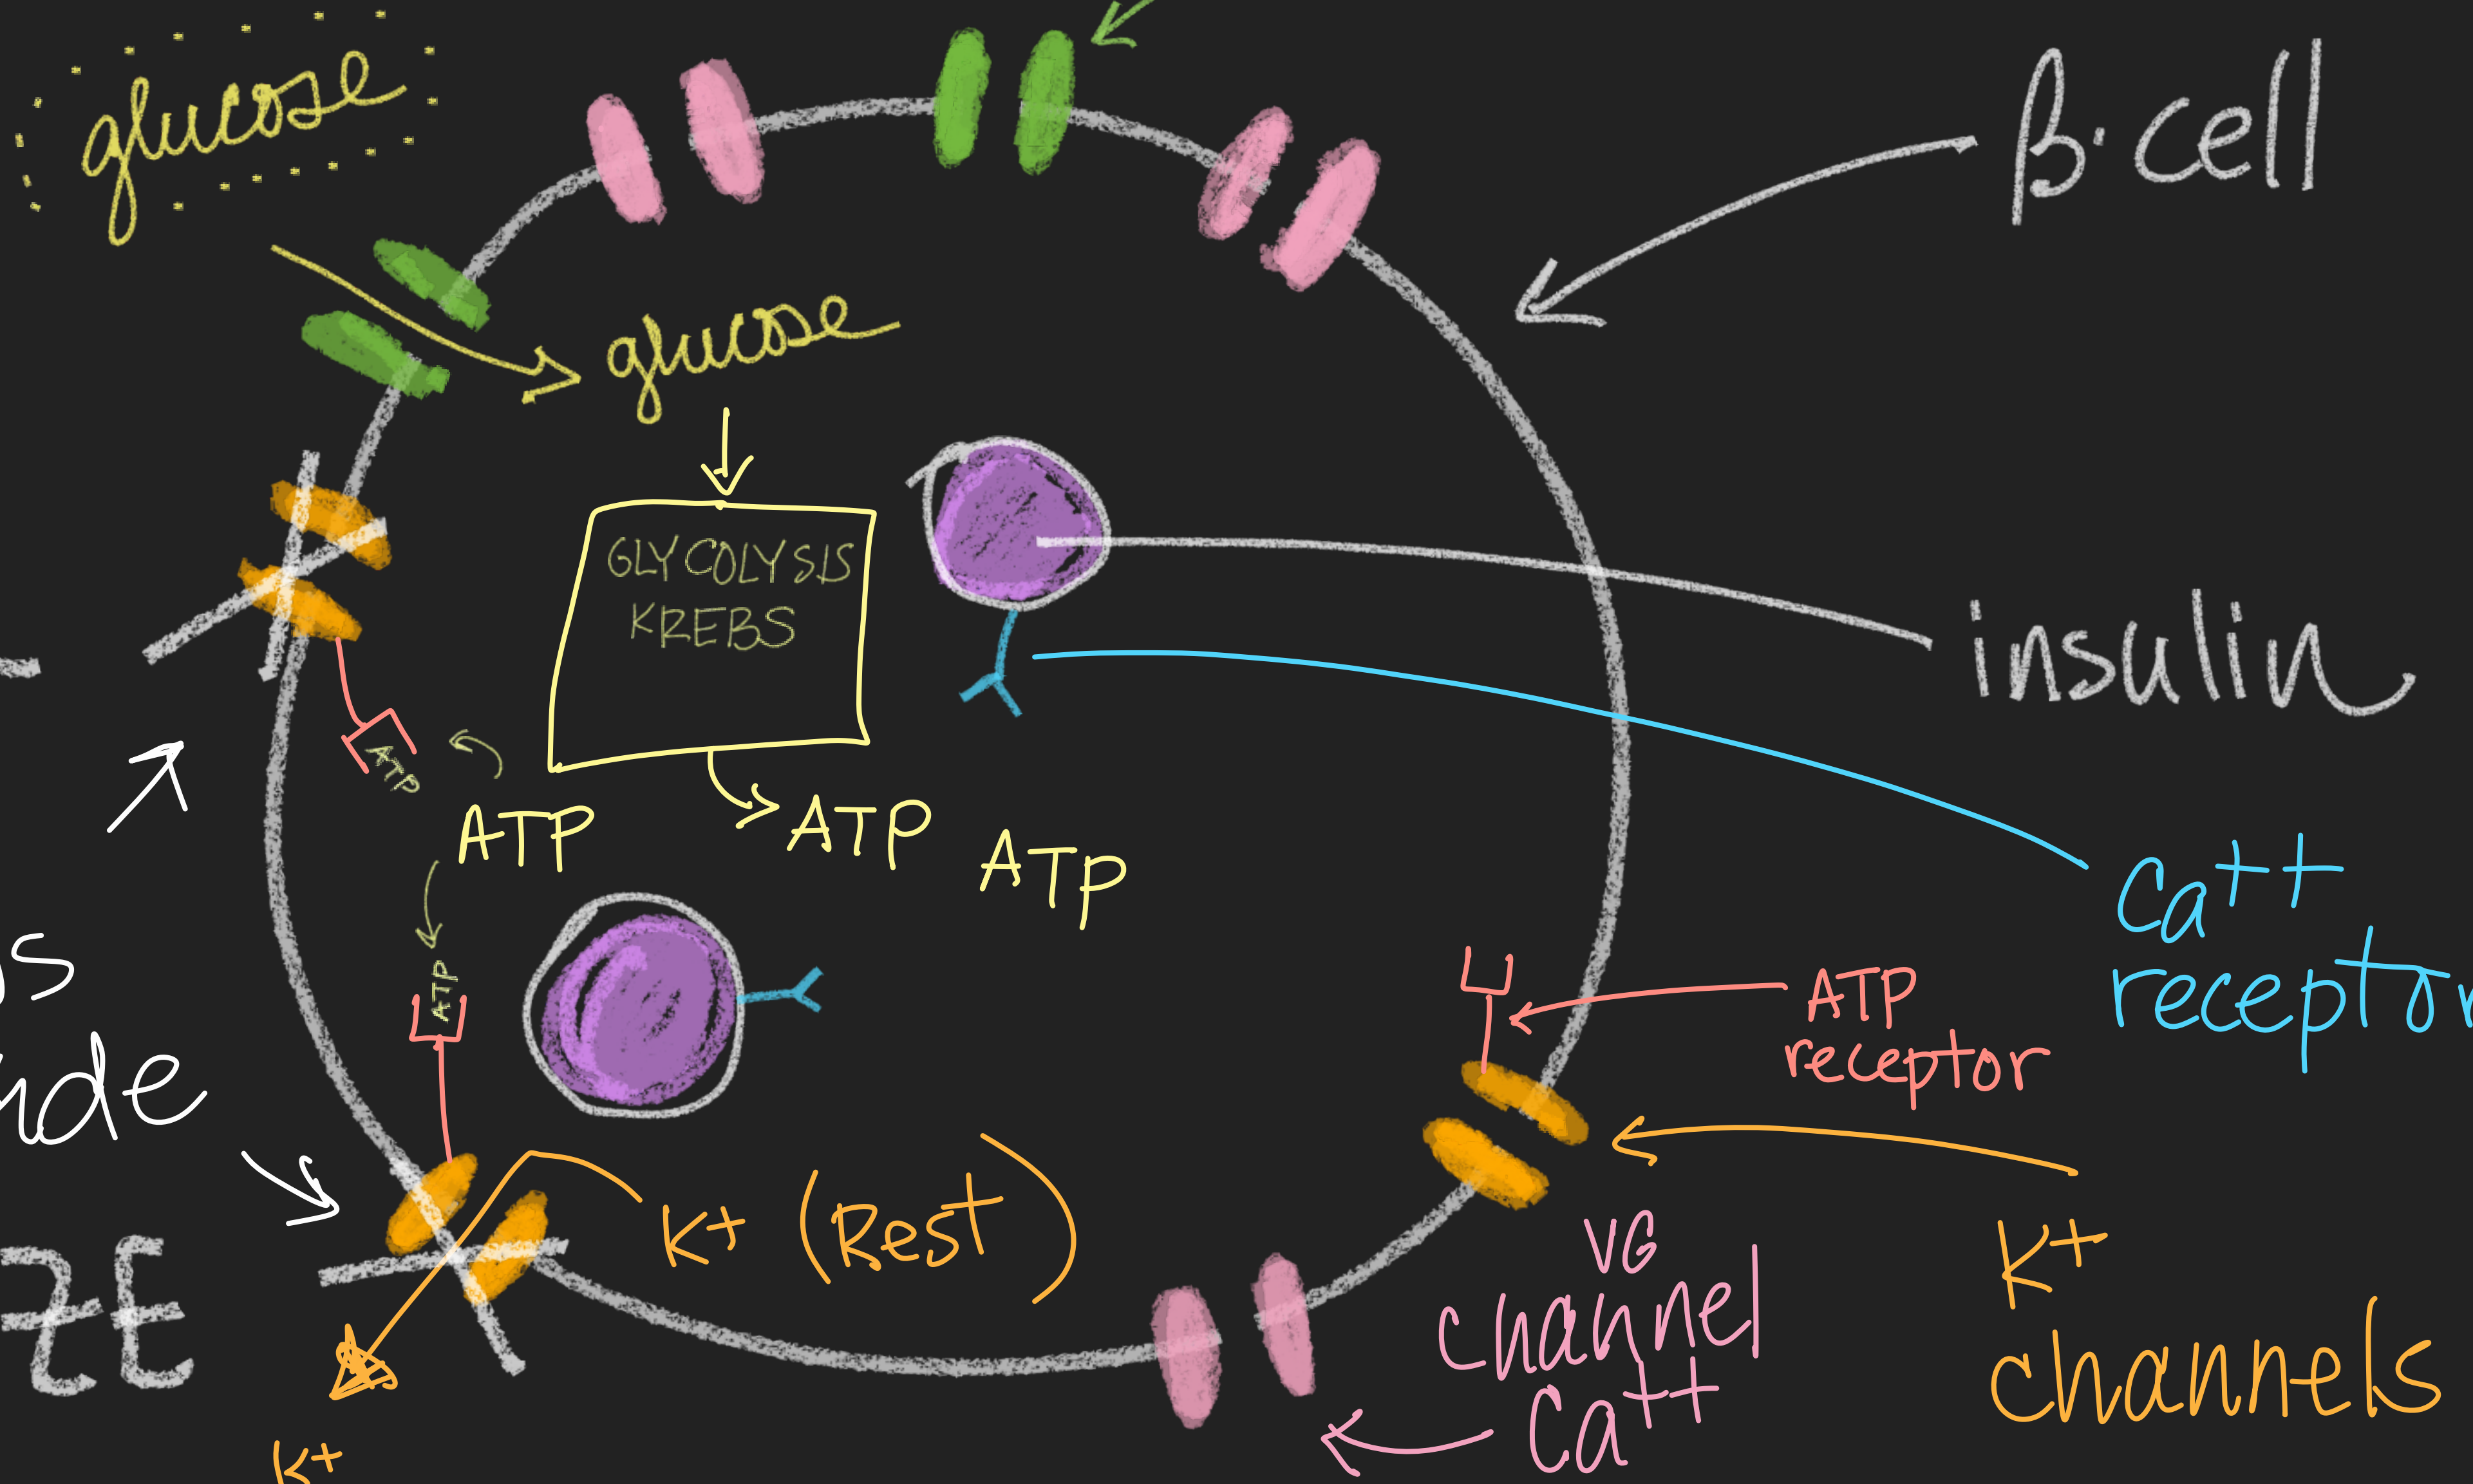 glucose
β·cell
glucose
GLYCOLYSIS
KREBS
insulin
ATP
ATP
ATP
ATP
ATP
Ca++
receptor
ATP
receptor
K+ (Rest)
K+
channels
VG
channel
Ca++
K+